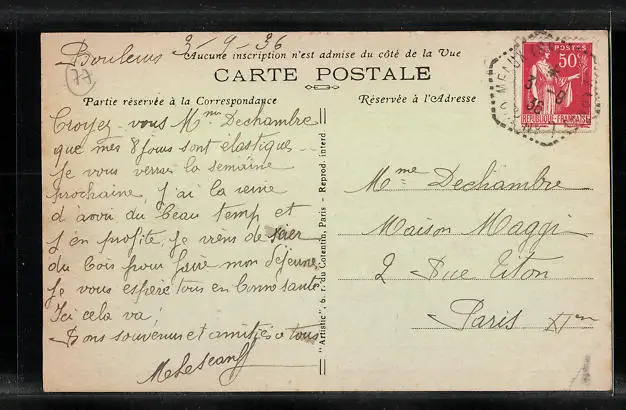 Bouleurs 3-9-36
Aucune inscription n'est admise du côté de la Vue
77
CARTE POSTALE
Partie réservée à la Correspondance
Réservée à l'Adresse
Croyez vous Mme Dechambre
que mes 8 jours sont élastiques
Je vous verrai la semaine
prochaine, j'ai la veine
d'avoir du beau temp et
j'en profite, je viens de scier
du bois pour faire mon déjeuner
Je vous espère tous en bonne santé
Ici cela va!
Bons souvenirs et amitiés a tous
Mme Dechambre
Maison Maggi
2 Rue Titon
Paris XIem
"Artistic" 6, r. du Cotentin, Paris - Reprod. interd.
POSTES
50c
REPUBLIQUE FRANÇAISE
MEAUX
3 -9
36